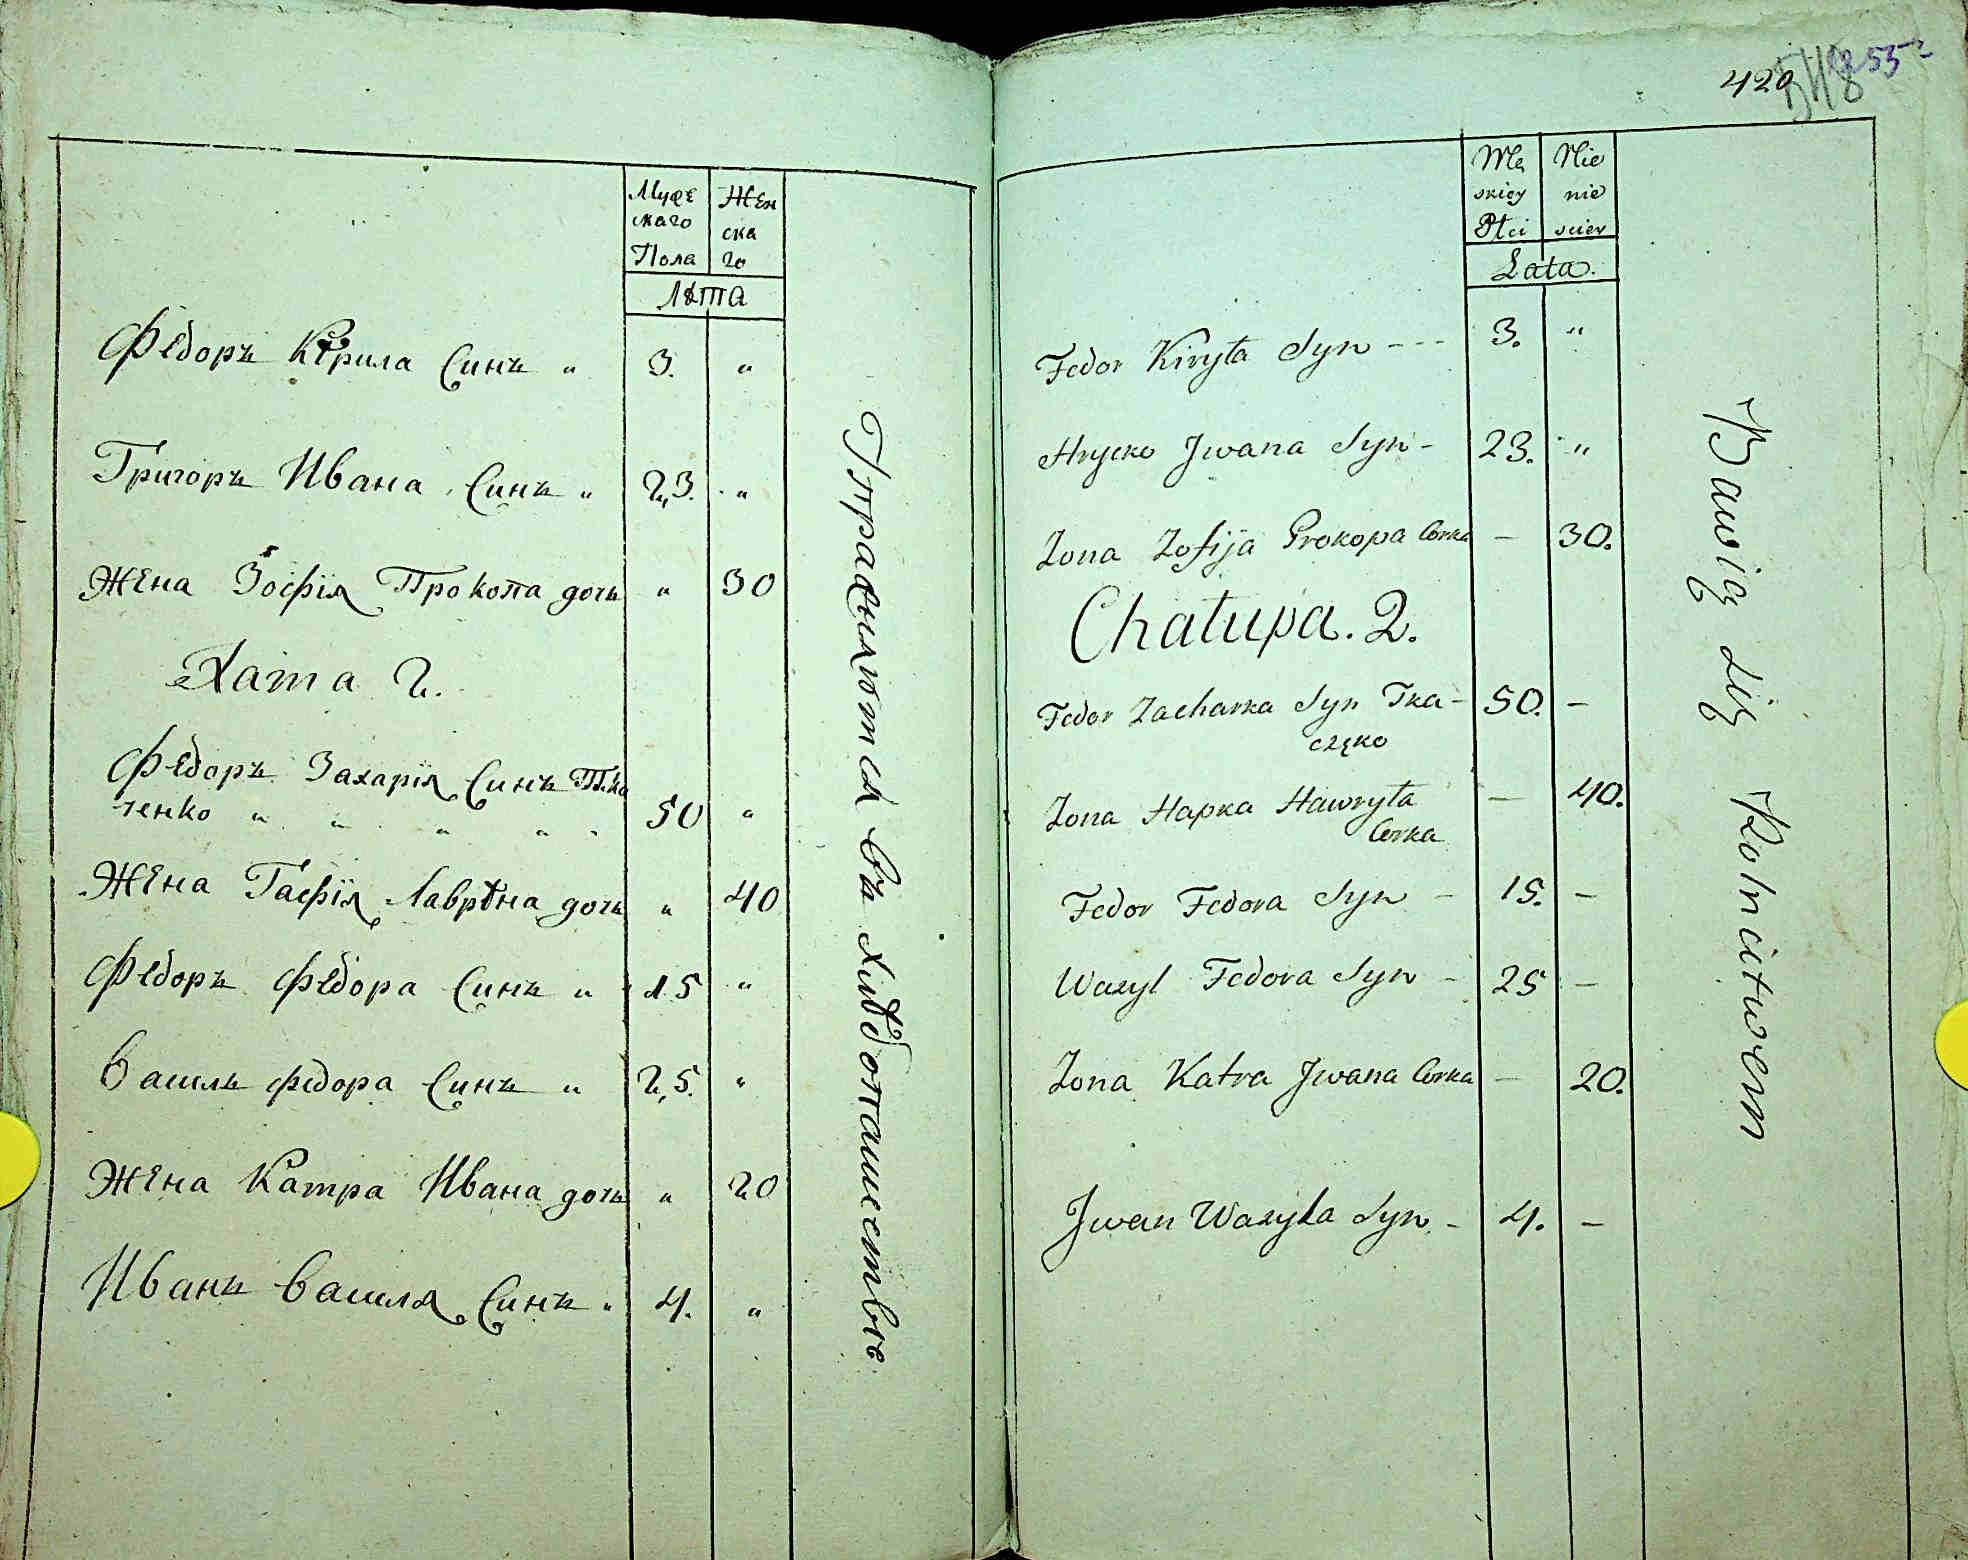 Муже Жен
скаго ска
Пола го
Лѣта
Федоръ Кирила Синъ „ 3. „
Григоръ Ивана Синъ „ 23. „
Жена Зофія Прокопа дочь „ 30
Хата 2.
Федоръ Захарія Синъ Тка
ченко „ „ „ „ „ 50 „
Жена Гафія Лаврѣна дочь „ 40
Федоръ Федора Синъ „ 15 „
Василь Федора Синъ „ 25. „
Жена Катра Ивана дочь „ 20
Иванъ Василя Синъ „ 4. „
Упражняются въ хлѣбопашествѣ
420
Mę Nie
skiey nie
Płci sciey
Lata.
Fedor Kiryła Syn - - - 3. „
Hrycko Jwana Syn - 23. „
Zona Zofija Prokopa Corka — 30.
Chałupa. 2.
Fedor Zacharka Syn Tka- 50. —
częko
Zona Hapka Hawryła — 40.
Corka
Fedor Fedora Syn - 15. —
Wasyl Fedora Syn - 25 —
Zona Katra Jwana Corka — 20.
Jwan Wasyla Syn - 4. —
Bawią się Rolnictwem